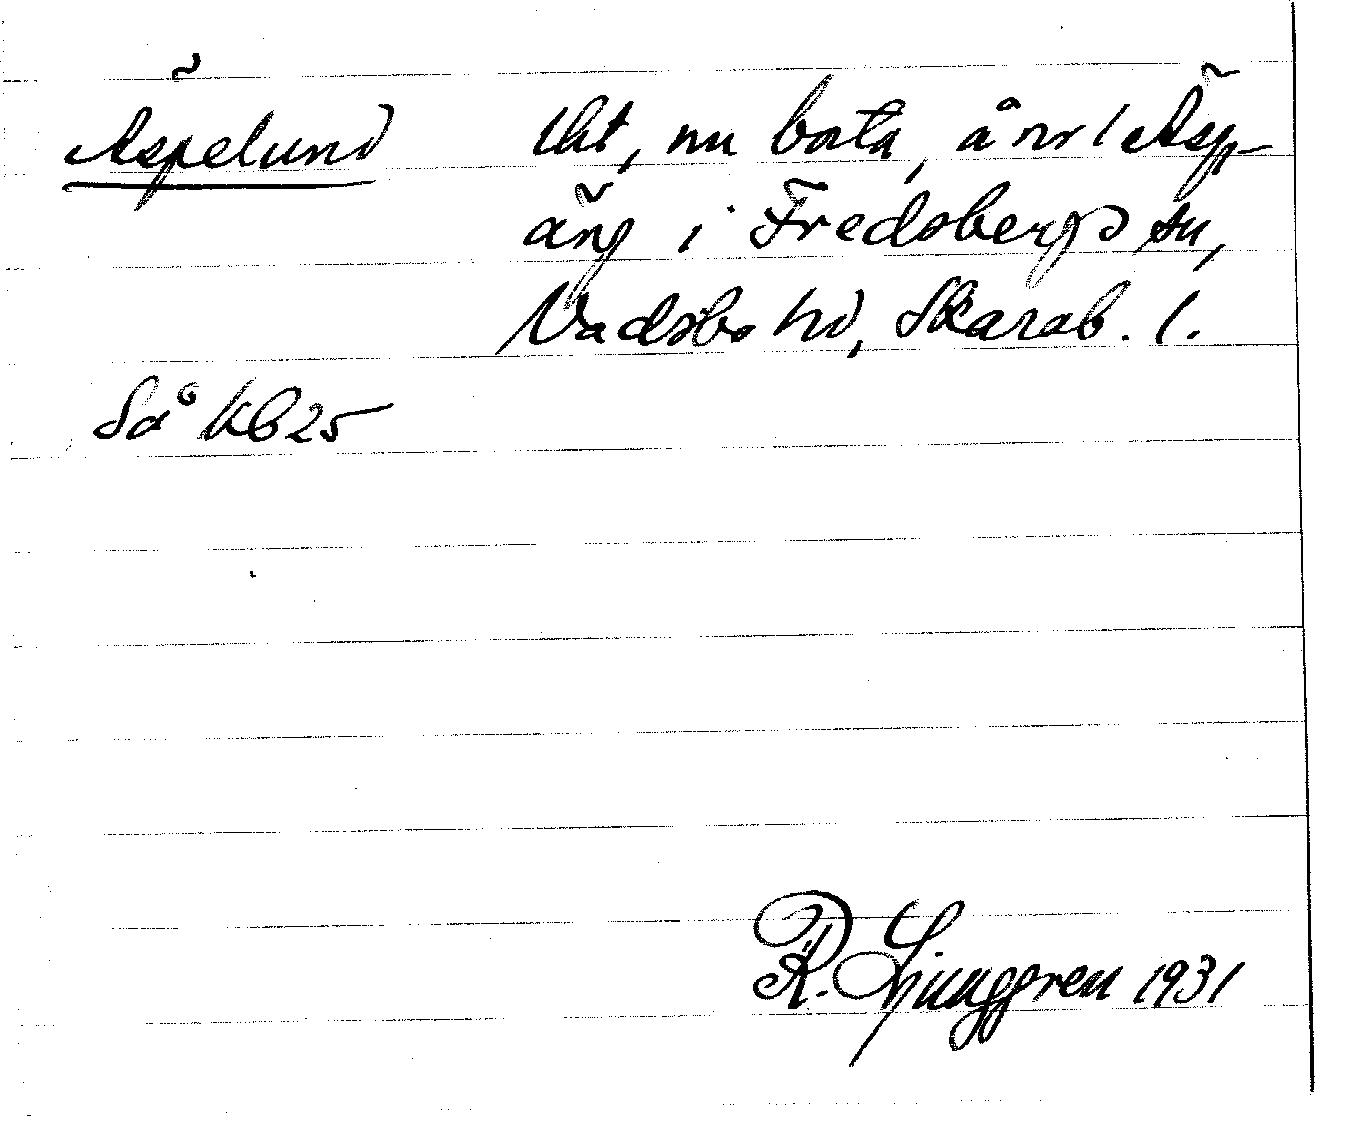 Äspelund lht, nu borta, å nr 1 Äsp-
äng i Fredsbergs sn,
Vadsbo hd, Skarab. l.
Så Kb 25
R. Ljunggren 1931